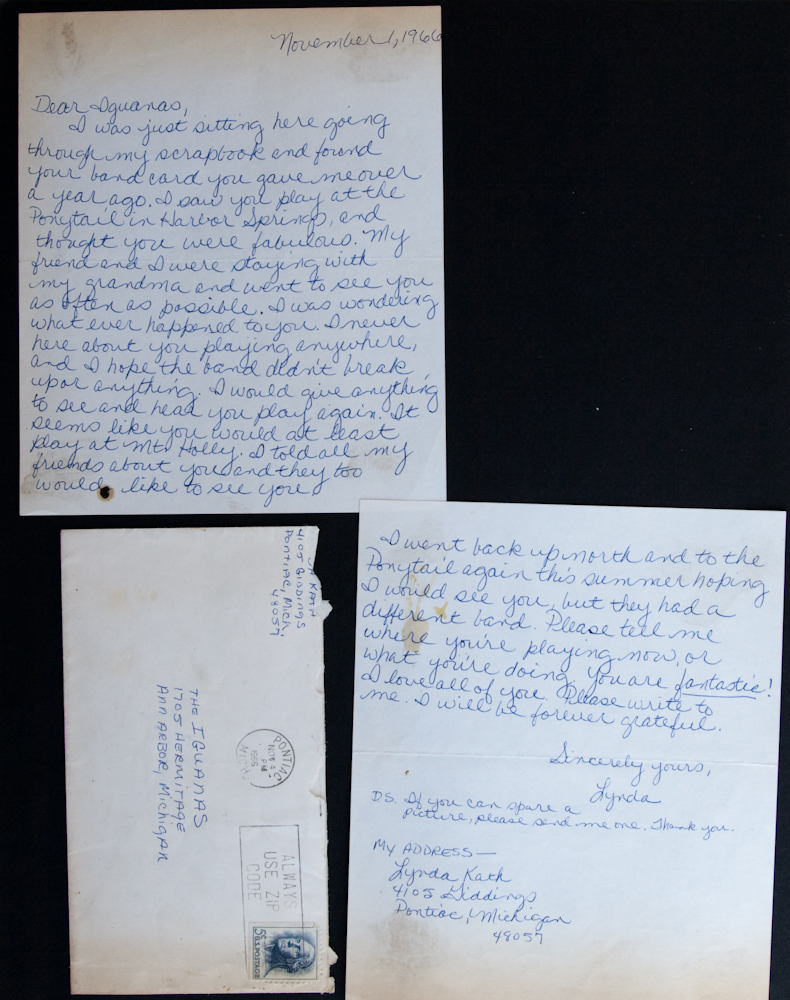 November 1, 1966
Dear Iguanas,
I was just sitting here going
through my scrapbook and found
your band card you gave me over
a year ago. I saw you play at the
Ponytail in Harbor Springs, and
thought you were fabulous. My
friend and I were staying with
my grandma and went to see you
as often as possible. I was wondering
what ever happened to you. I never
here about you playing anywhere,
and I hope the band didn't break
up or anything. I would give anything
to see and hear you play again. It
seems like you would at least
play at Mt. Holly. I told all my
friends about you and they too
would like to see you
I went back up north and to the
Ponytail again this summer hoping
I would see you, but they had a
different band. Please tell me
where you're playing now, or
what you're doing. You are fantastic!
I love all of you. Please write to
me. I will be forever grateful.
Sincerely yours,
Lynda
P.S. If you can spare a
picture, please send me one. Thank you.
MY ADDRESS—
Lynda Kath
4105 Giddings
Pontiac, Michigan
48057
KATH
4105 GIDDINGS
PONTIAC, MICH.
48057
PONTIAC
NOV
PM
1966
MICH.
ALWAYS
USE ZIP
CODE
5¢ U.S. POSTAGE
THE IGUANAS
1705 HERMITAGE
ANN ARBOR, MICHIGAN